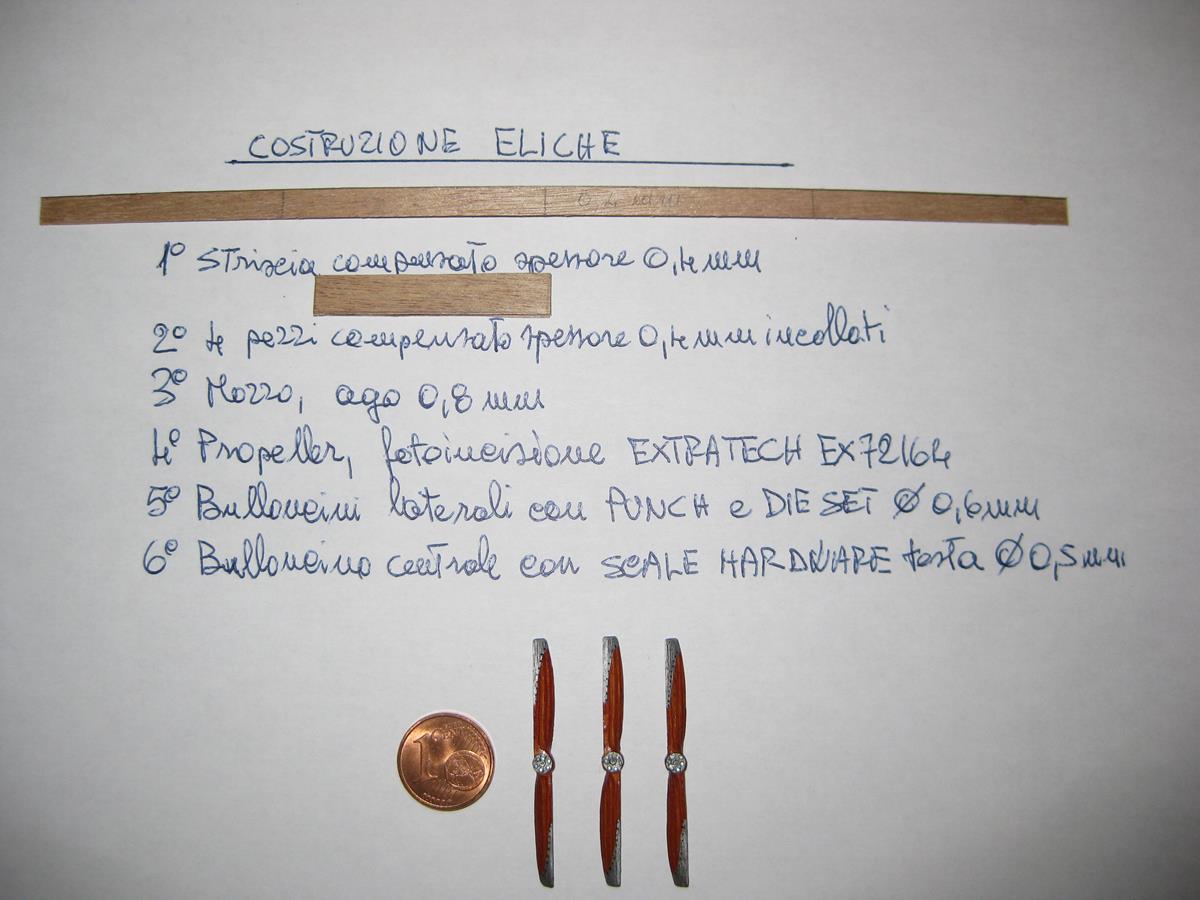 COSTRUZIONE ELICHE
0,4 mm
1° Striscia compensato spessore 0,4 mm
2° 4 pezzi compensato spessore 0,4 mm incollati
3° Mozzo, ago 0,8 mm
4° Propeller, fotoincisione EXTRATECH EX72164
5° Bulloncini laterali con PUNCH e DIE SET Ø 0,6 mm
6° Bulloncino centrale con SCALE HARDWARE testa Ø 0,5 mm
1